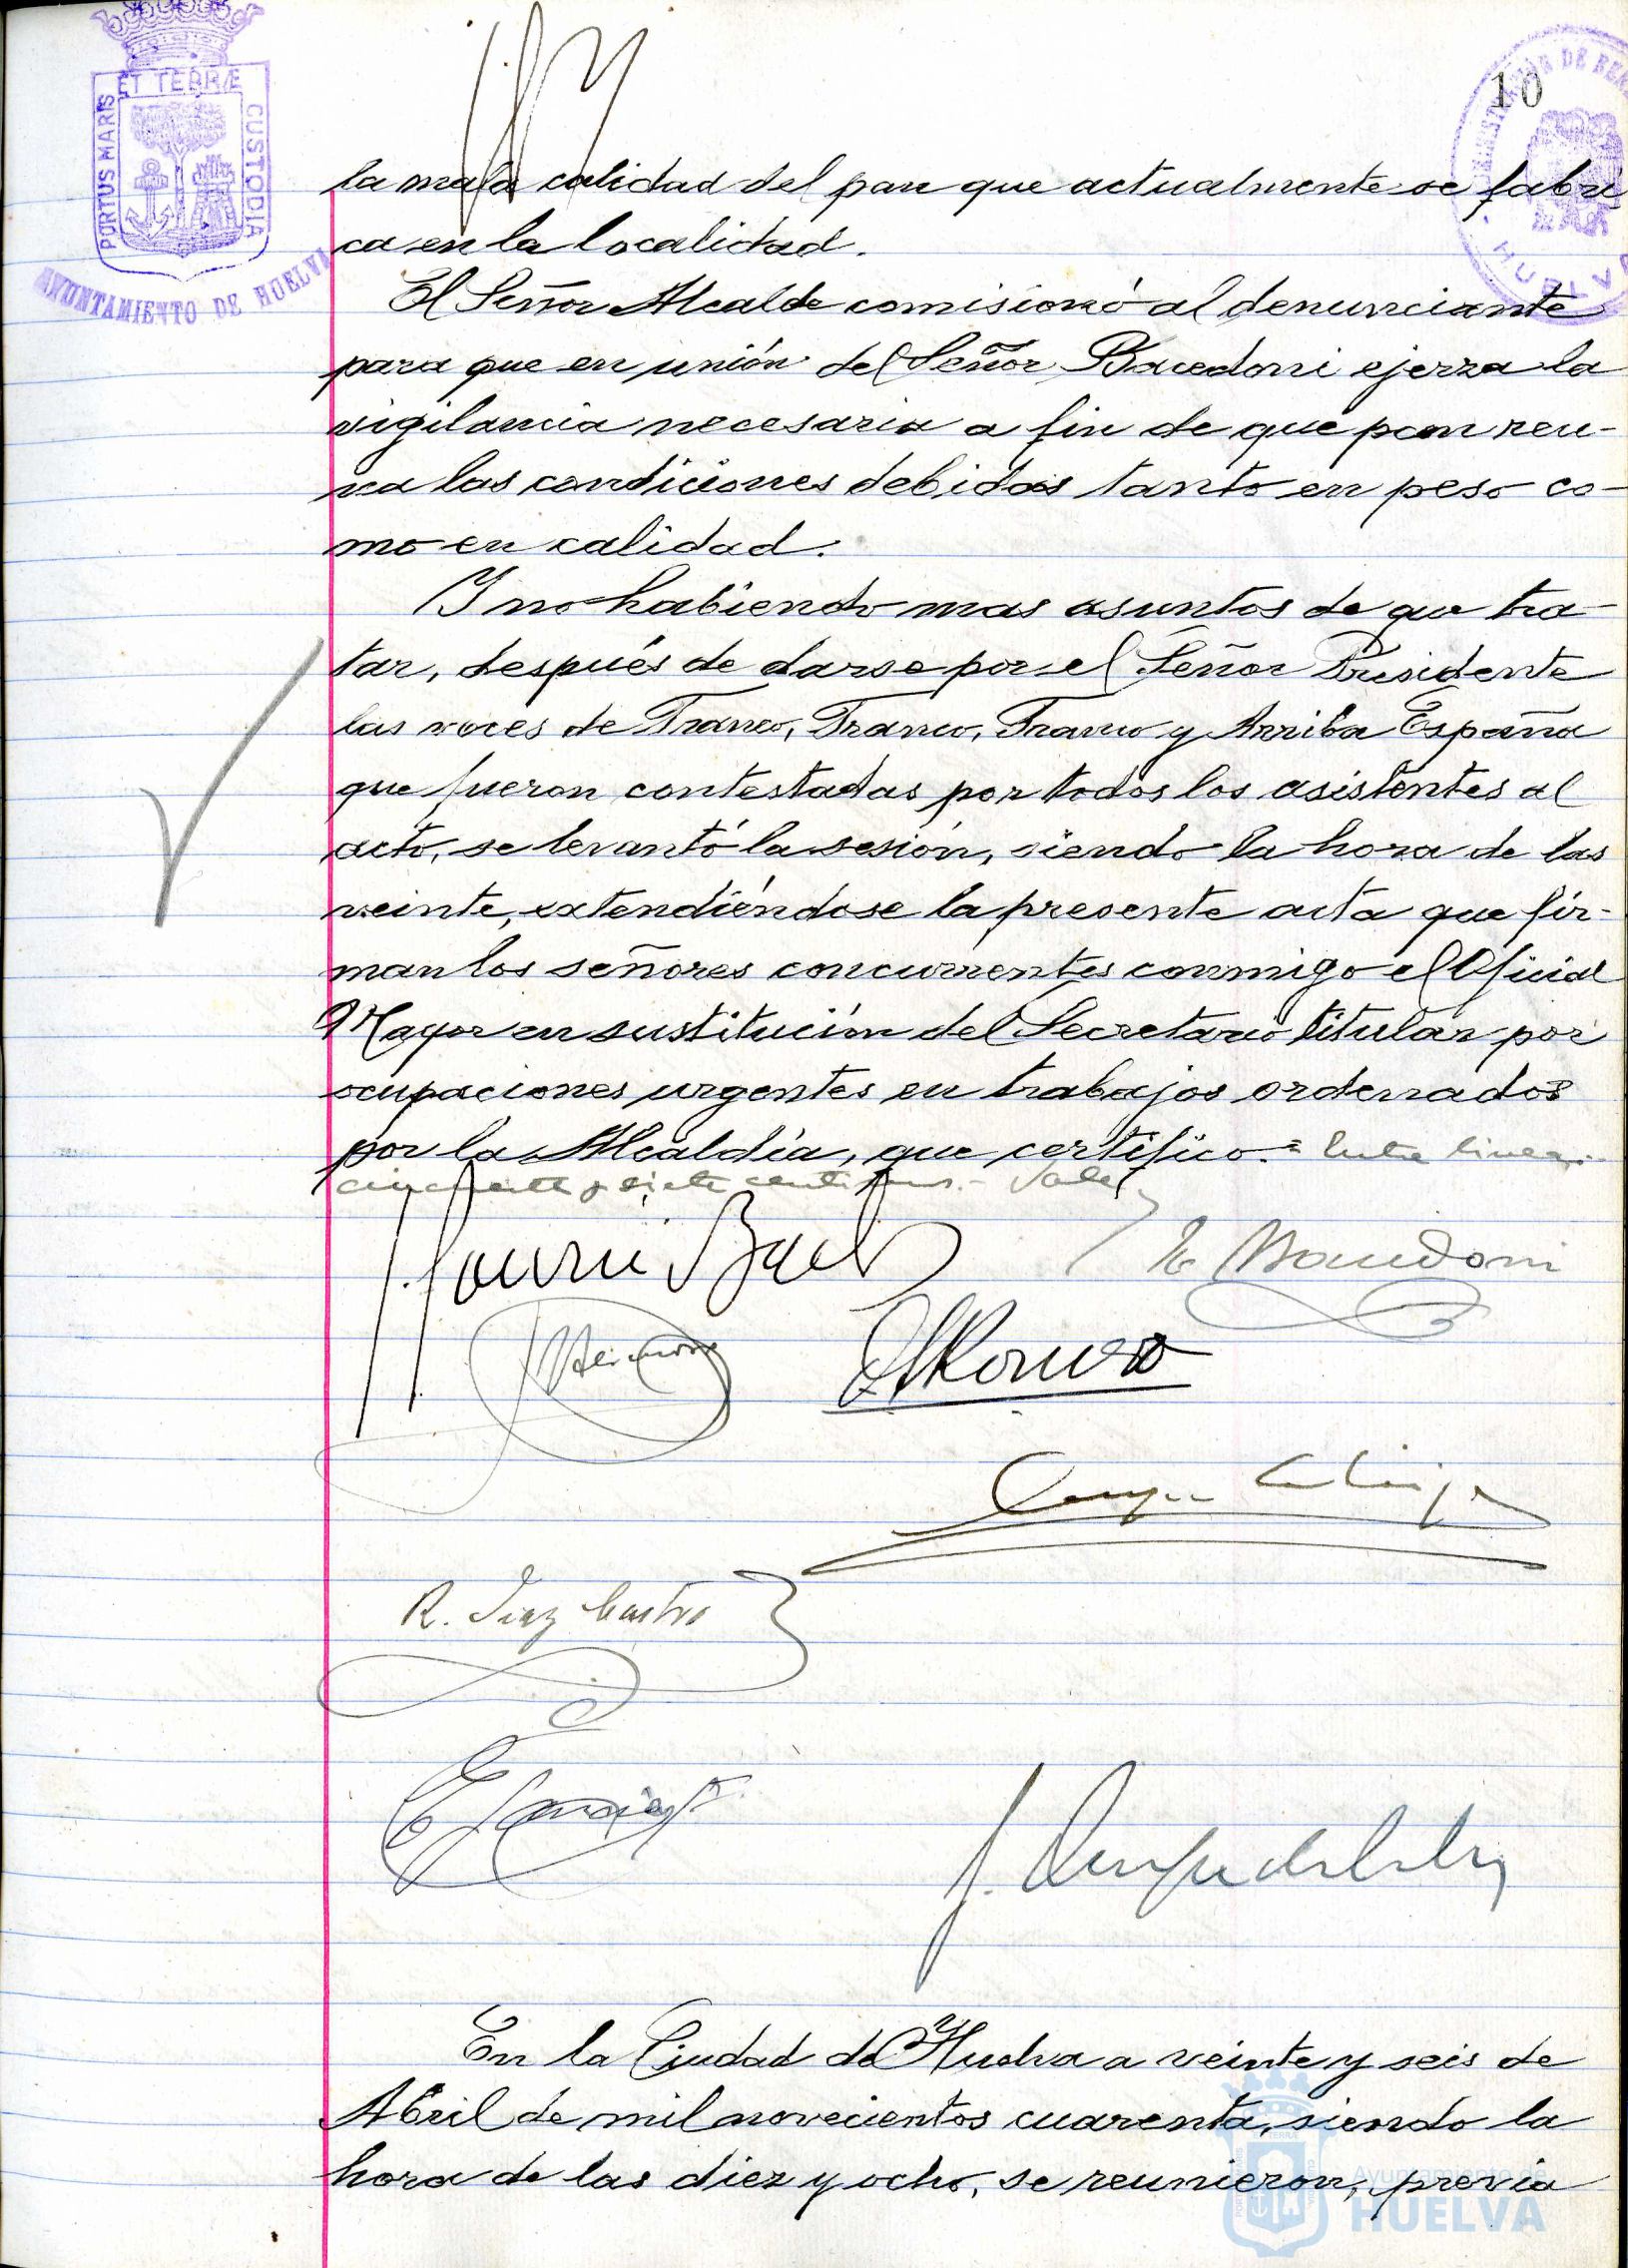 ET TERRÆ
PORTUS MARIS
CUSTODIA
AYUNTAMIENTO DE HUELVA
DE BEN
HUELVA
10
la mala calidad del pan que actualmente se fabri
ca en la localidad.
El Señor Alcalde comisionó al denunciante
para que en unión del Señor Bacedoni ejerza la
vigilancia necesaria a fin de que pan reu-
na las condiciones debidas tanto en peso co-
mo en calidad.
Y no habiendo mas asuntos de que tra-
tar, después de darse por el Señor Presidente
las voces de Franco, Franco, Franco y Arriba España
que fueron contestadas por todos los asistentes al
acto, se levantó la sesión, siendo la hora de las
veinte, extendiéndose la presente acta que fir-
man los señores concurrentes conmigo el Oficial
Mayor en sustitución del Secretario titular por
ocupaciones urgentes en trabajos ordenados
por la Alcaldía, que certifico.= Entre lineas.-
cincuenta y siete centimos.- Vale
R. Diaz Castro
En la Ciudad de Huelva a veinte y seis de
Abril de mil novecientos cuarenta, siendo la
hora de las diez y ocho, se reunieron, previa
Ayuntamiento de
HUELVA